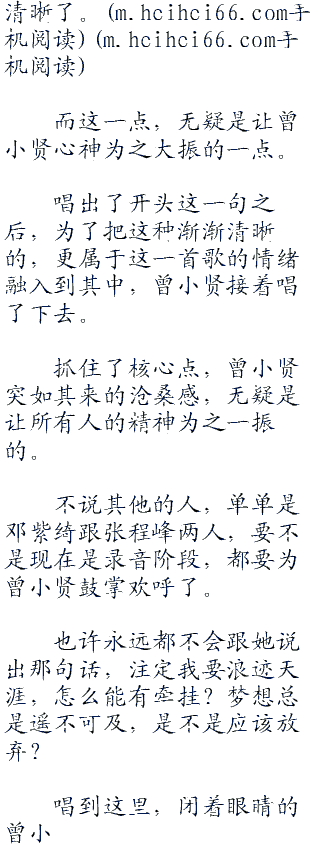 清晰了。(m.hcihci66.com手
机阅读)(m.hcihci66.com手
机阅读)
而这一点，无疑是让曾
小贤心神为之大振的一点。
唱出了开头这一句之
后，为了把这种渐渐清晰
的，更属于这一首歌的情绪
融入到其中，曾小贤接着唱
了下去。
抓住了核心点，曾小贤
突如其来的沧桑感，无疑是
让所有人的精神为之一振
的。
不说其他的人，单单是
邓紫绮跟张程峰两人，要不
是现在是录音阶段，都要为
曾小贤鼓掌欢呼了。
也许永远都不会跟她说
出那句话，注定我要浪迹天
涯，怎么能有牵挂？梦想总
是遥不可及，是不是应该放
弃？
唱到这里，闭着眼睛的
曾小